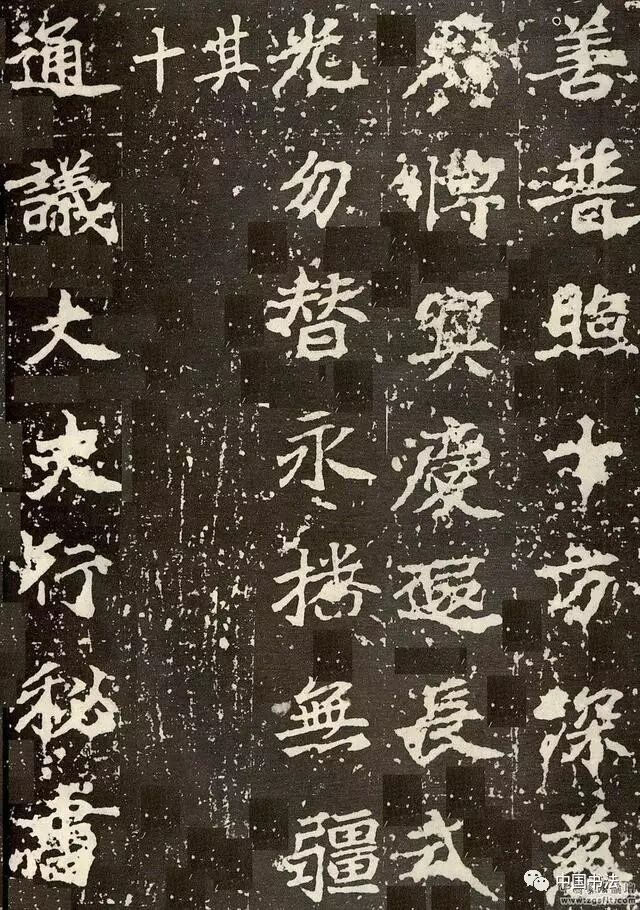 善普照十方深
博冥慶遐長式
光勿替永播無疆
其十
通議大夫行秘書
中国书法
www.tzgsfjt.com